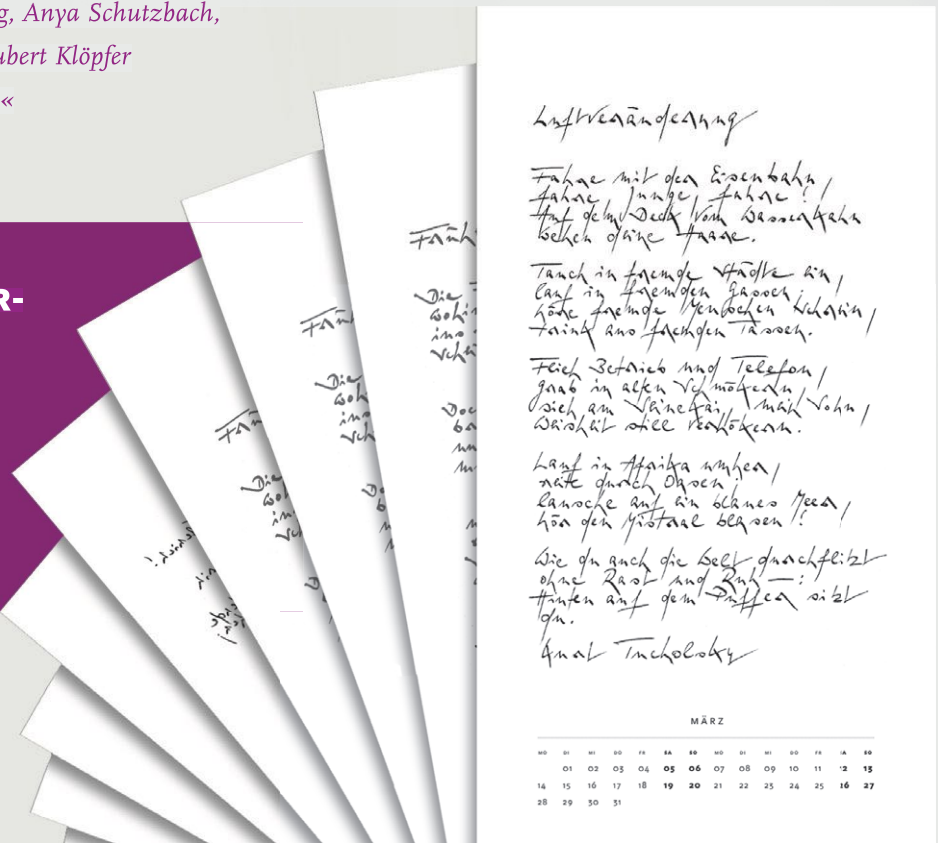 g, Anya Schutzbach,
ubert Klöpfer
«
R-
Luftveränderung
Fahre mit der Eisenbahn,
fahre, Junge, fahre!
Auf dem Deck vom Wasserkahn
wehen deine Haare.
Tauch in fremde Städte ein,
lauf in fremden Gassen;
höre fremde Menschen schrein,
trink aus fremden Tassen.
Flieh Betrieb und Telefon,
grab in alten Schmökern,
sieh am Seinekai, mein Sohn,
Weisheit still verhökern.
Lauf in Afrika umher,
reite durch Oasen;
lausche auf ein blaues Meer,
hör den Mistral blasen!
Wie du auch die Welt durchflitzt
ohne Rast und Ruh –:
Hinten auf dem Puffer sitzt
du.
Kurt Tucholsky
Früh
Die
wohi
ins
Doc
Früh
Die
woh
ins
Frü
Die
MÄRZ
MO DI MI DO FR SA SO MO DI MI DO FR SA SO
01 02 03 04 05 06 07 08 09 10 11 12 13
14 15 16 17 18 19 20 21 22 23 24 25 26 27
28 29 30 31